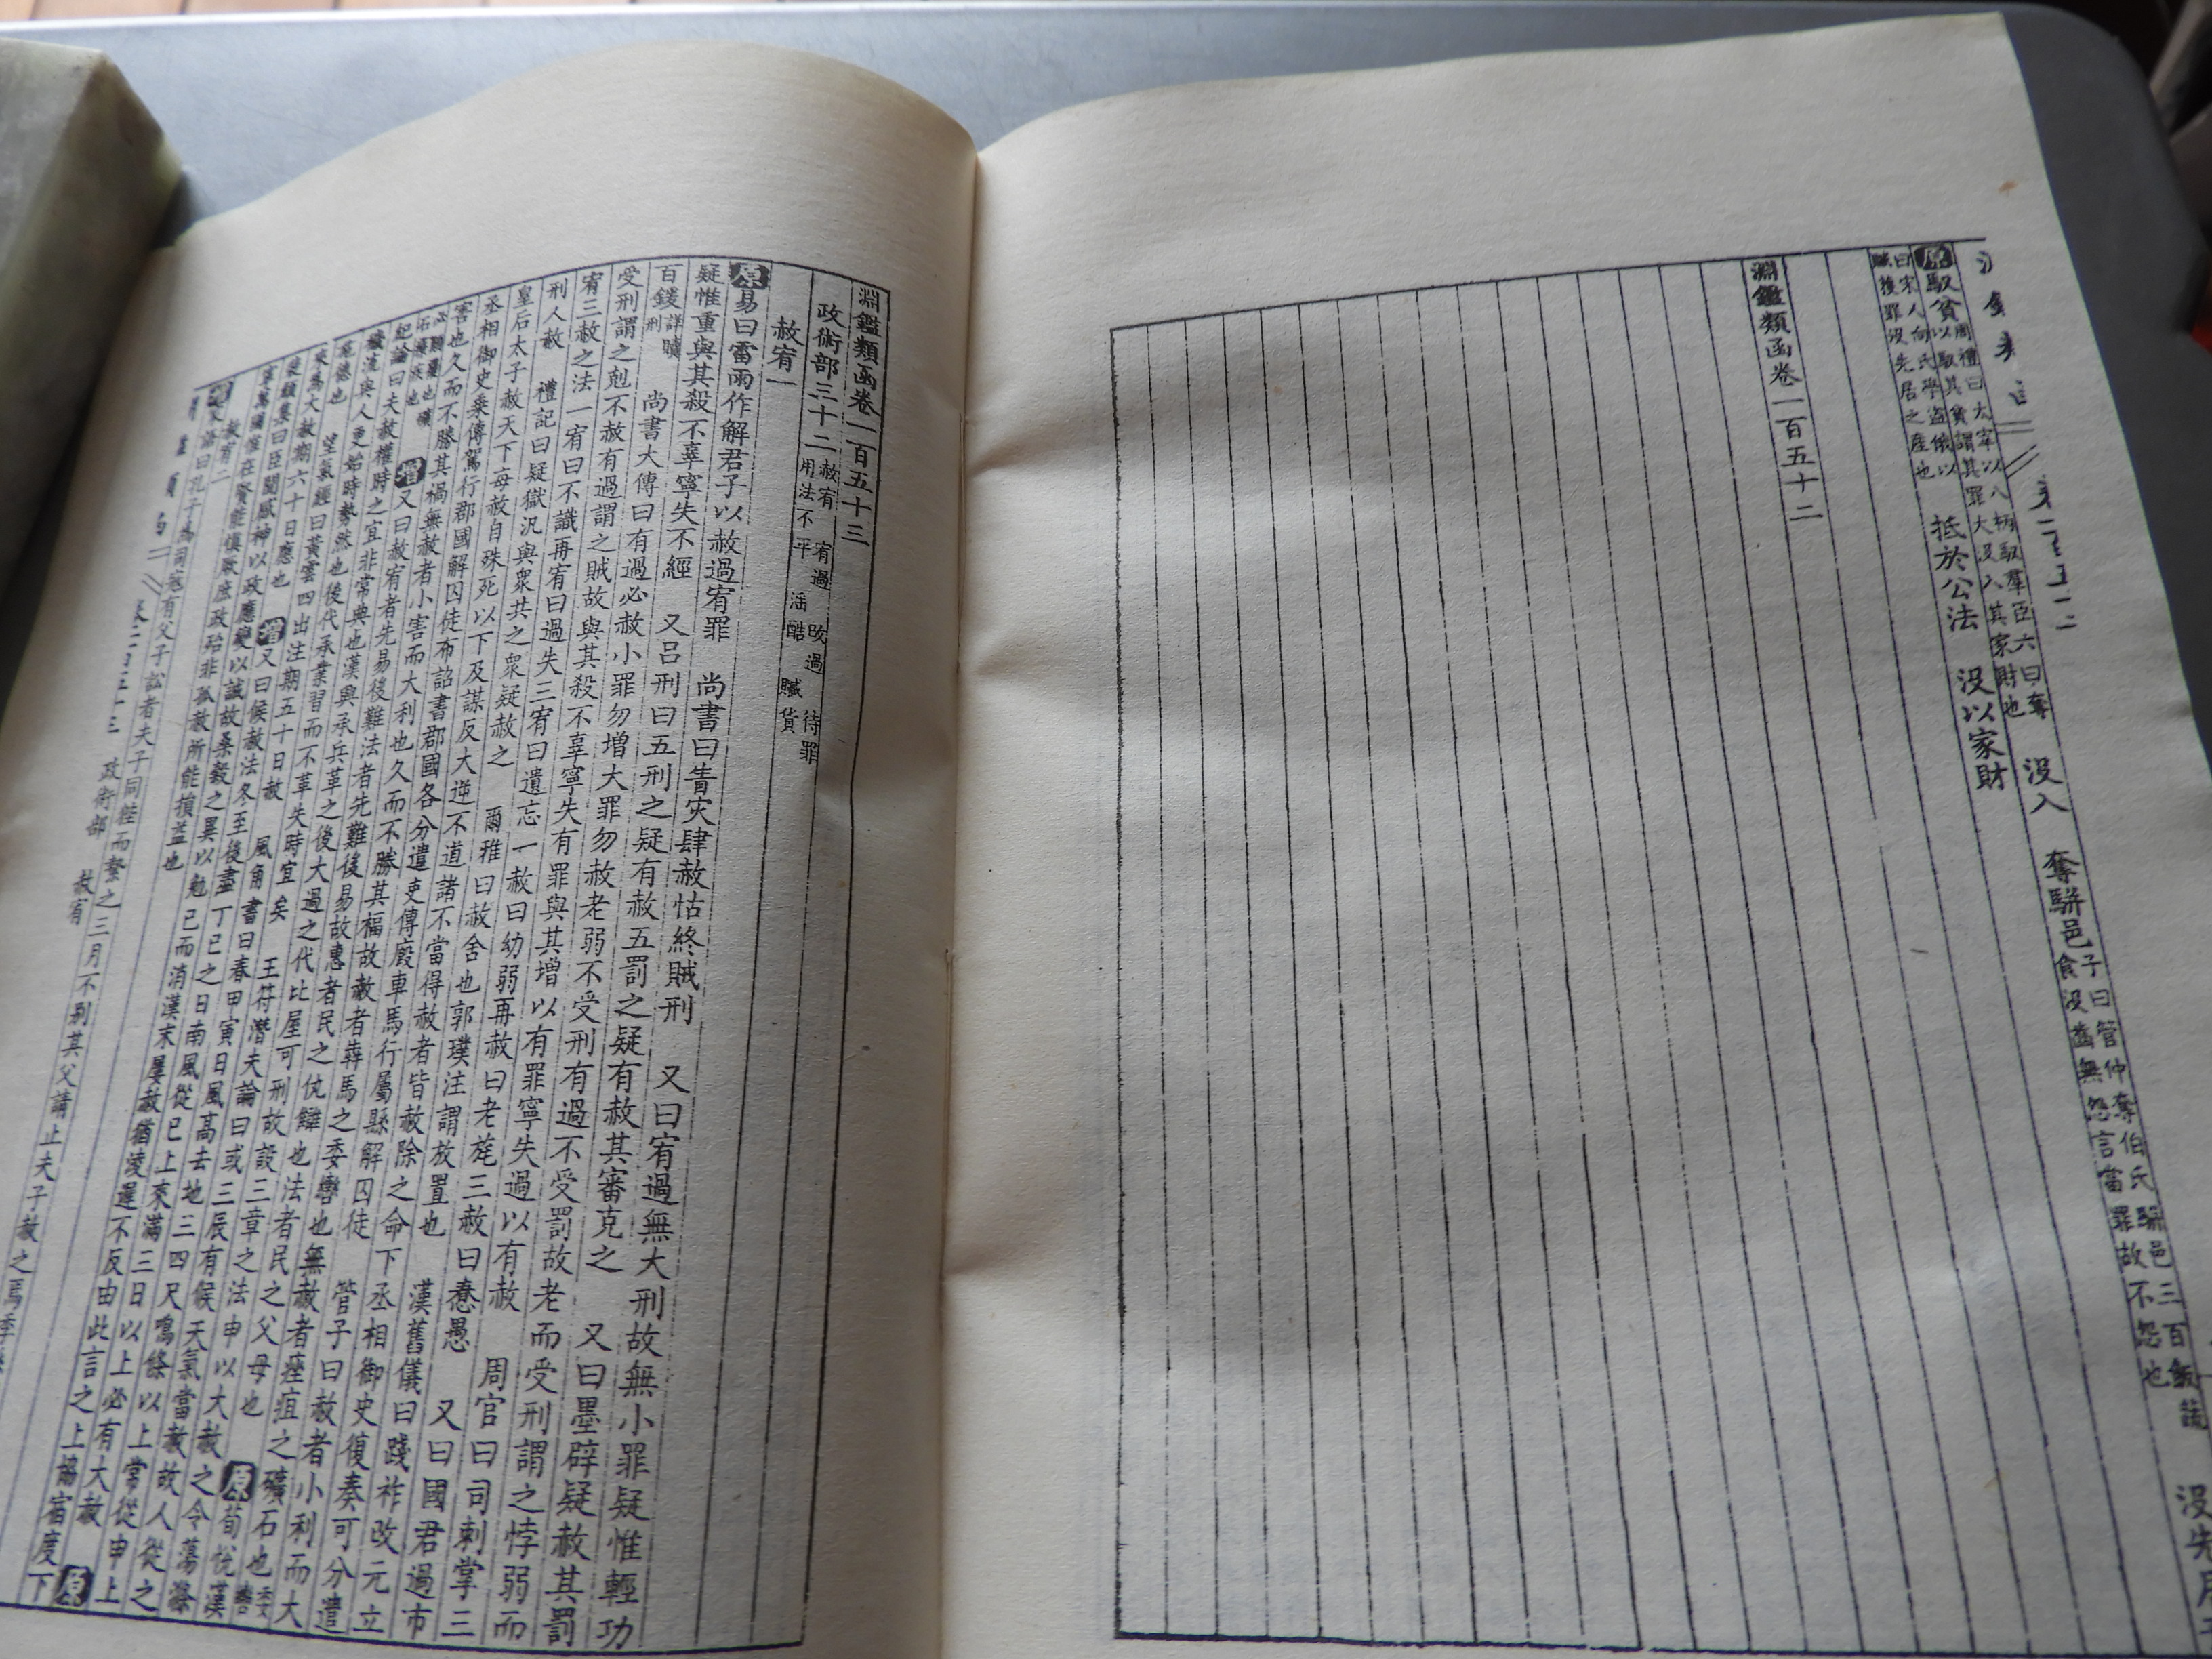 原馭貧周禮曰太宰以八柄馭羣臣六曰奪以馭其貧謂其罪大沒入其家財也 沒入 奪駢邑子曰管仲奪伯氏駢邑三百飯食沒齒無怨言當罪故不怨也 沒先
曰宋人向氏學盜俄以贓獲罪沒先居之產也 抵於公法 沒以家財
淵鑑類函卷一百五十二
淵鑑類函卷一百五十三
政術部三十二 赦宥 宥過 改過 待罪 用法不平 滛酷 贓貨
赦宥一
原易曰雷雨作解君子以赦過宥罪 尚書曰眚灾肆赦怙終賊刑 又曰宥過無大刑故無小罪疑惟輕功
疑惟重與其殺不辜寧失不經 又呂刑曰五刑之疑有赦五罰之疑有赦其審克之 又曰墨辟疑赦其罰
百鍰詳贖刑 尚書大傳曰有過必赦小罪勿增大罪勿赦老弱不受刑有過不受罰故老而受刑謂之悖弱而
受刑謂之剋不赦有過謂之賊故與其殺不辜寧失有罪與其增以有罪寧失過以有赦 周官曰司刺掌三
宥三赦之法一宥曰不識再宥曰過失三宥曰遺忘一赦曰幼弱再赦曰老旄三赦曰憃愚 又曰國君過市
刑人赦 禮記曰疑獄汎與衆共之衆疑赦之 爾雅曰赦舍也郭璞注謂放置也 漢舊儀曰踐祚改元立
皇后太子赦天下每赦自殊死以下及謀反大逆不道諸不當得赦者皆赦除之命下丞相御史復奏可分遣
丞相御史乘傳駕行郡國解囚徒布詔書郡國各分遣吏傳廄車馬行屬縣解囚徒 管子曰赦者小利而大
害也久而不勝其禍無赦者小害而大利也久而不勝其福故赦者犇馬之委轡也無赦者痤疽之礦石也委轡
也礦石也 增又曰赦宥者先易後難法者先難後易故惠者民之仇讎也法者民之父母也 原荀悅漢
紀論曰夫赦權時之宜非常典也漢興承兵革之後大過之代比屋可刑故設三章之法申以大赦之令蕩滌
穢流與人更始時勢然也後代承業習而不革失時宜矣 王符潛夫論曰或三辰有候天氣當赦故人從之
施德也 望氣經曰黃雲四出注期五十日赦 風角書曰春甲寅日風高去地三四尺鳴條以上常從申上
來為大赦期六十日應也 增又曰候赦法冬至後盡丁巳之日南風從巳上來滿三日以上必有大赦 原
集曰臣聞感神以政應變以誠故桑穀之異以勉己而消漢末屢赦猶淩遲不反由此言之上協宿度下
寧萬國惟在賢能慎厥庶政殆非孤赦所能損益也
赦宥二
家語曰孔子為司寇有父子訟者夫子同狴而繫之三月不別其父請止夫子赦之焉季
淵鑑類函 卷一百五十三 政術部 赦宥